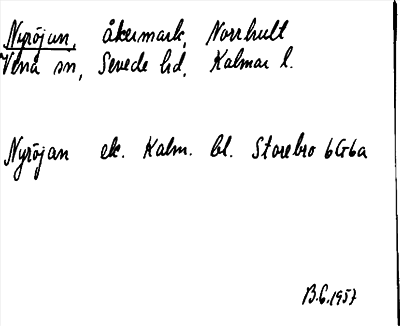 Nyröjan, åkermark, Norrhult
Vena sn, Sevede hd, Kalmar l.
Nyröjan ek. Kalm. bl. Storebro 6G6a
B.E. 1957